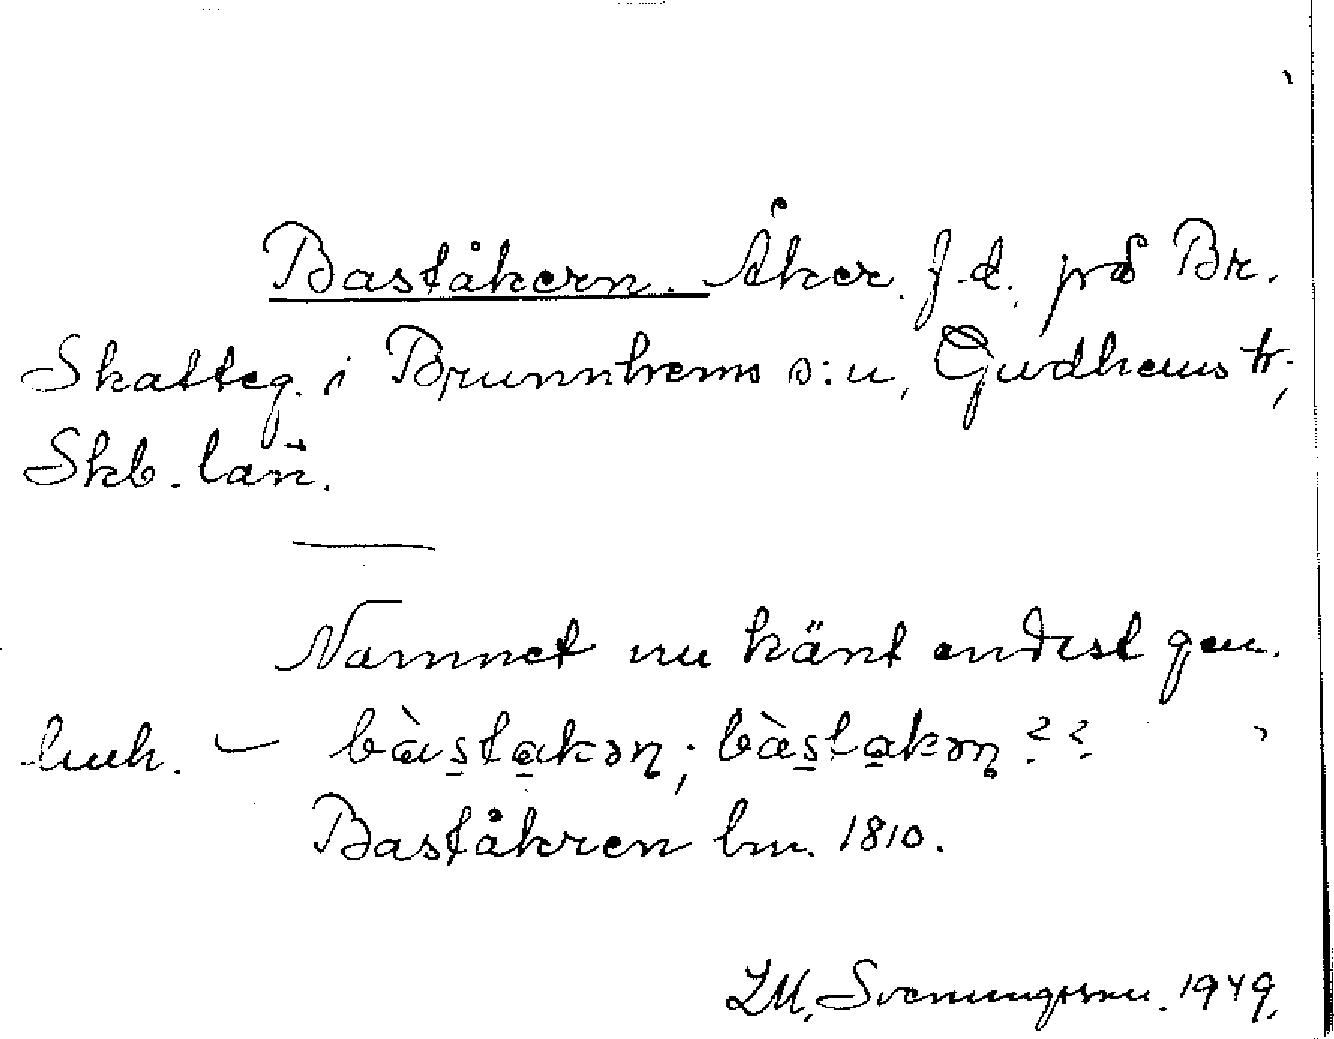 Baståkern. Åker f.d. på Br.
Skatteg. i Brunnhems s:n, Gudhems hr;
Skb. län.
Namnet nu känt endast gen.
luh. – bàs̲ta̲kəɳ; bàs̲ta̲kəɳ??
Baståkren lm. 1810.
Svenungsson. 1949.